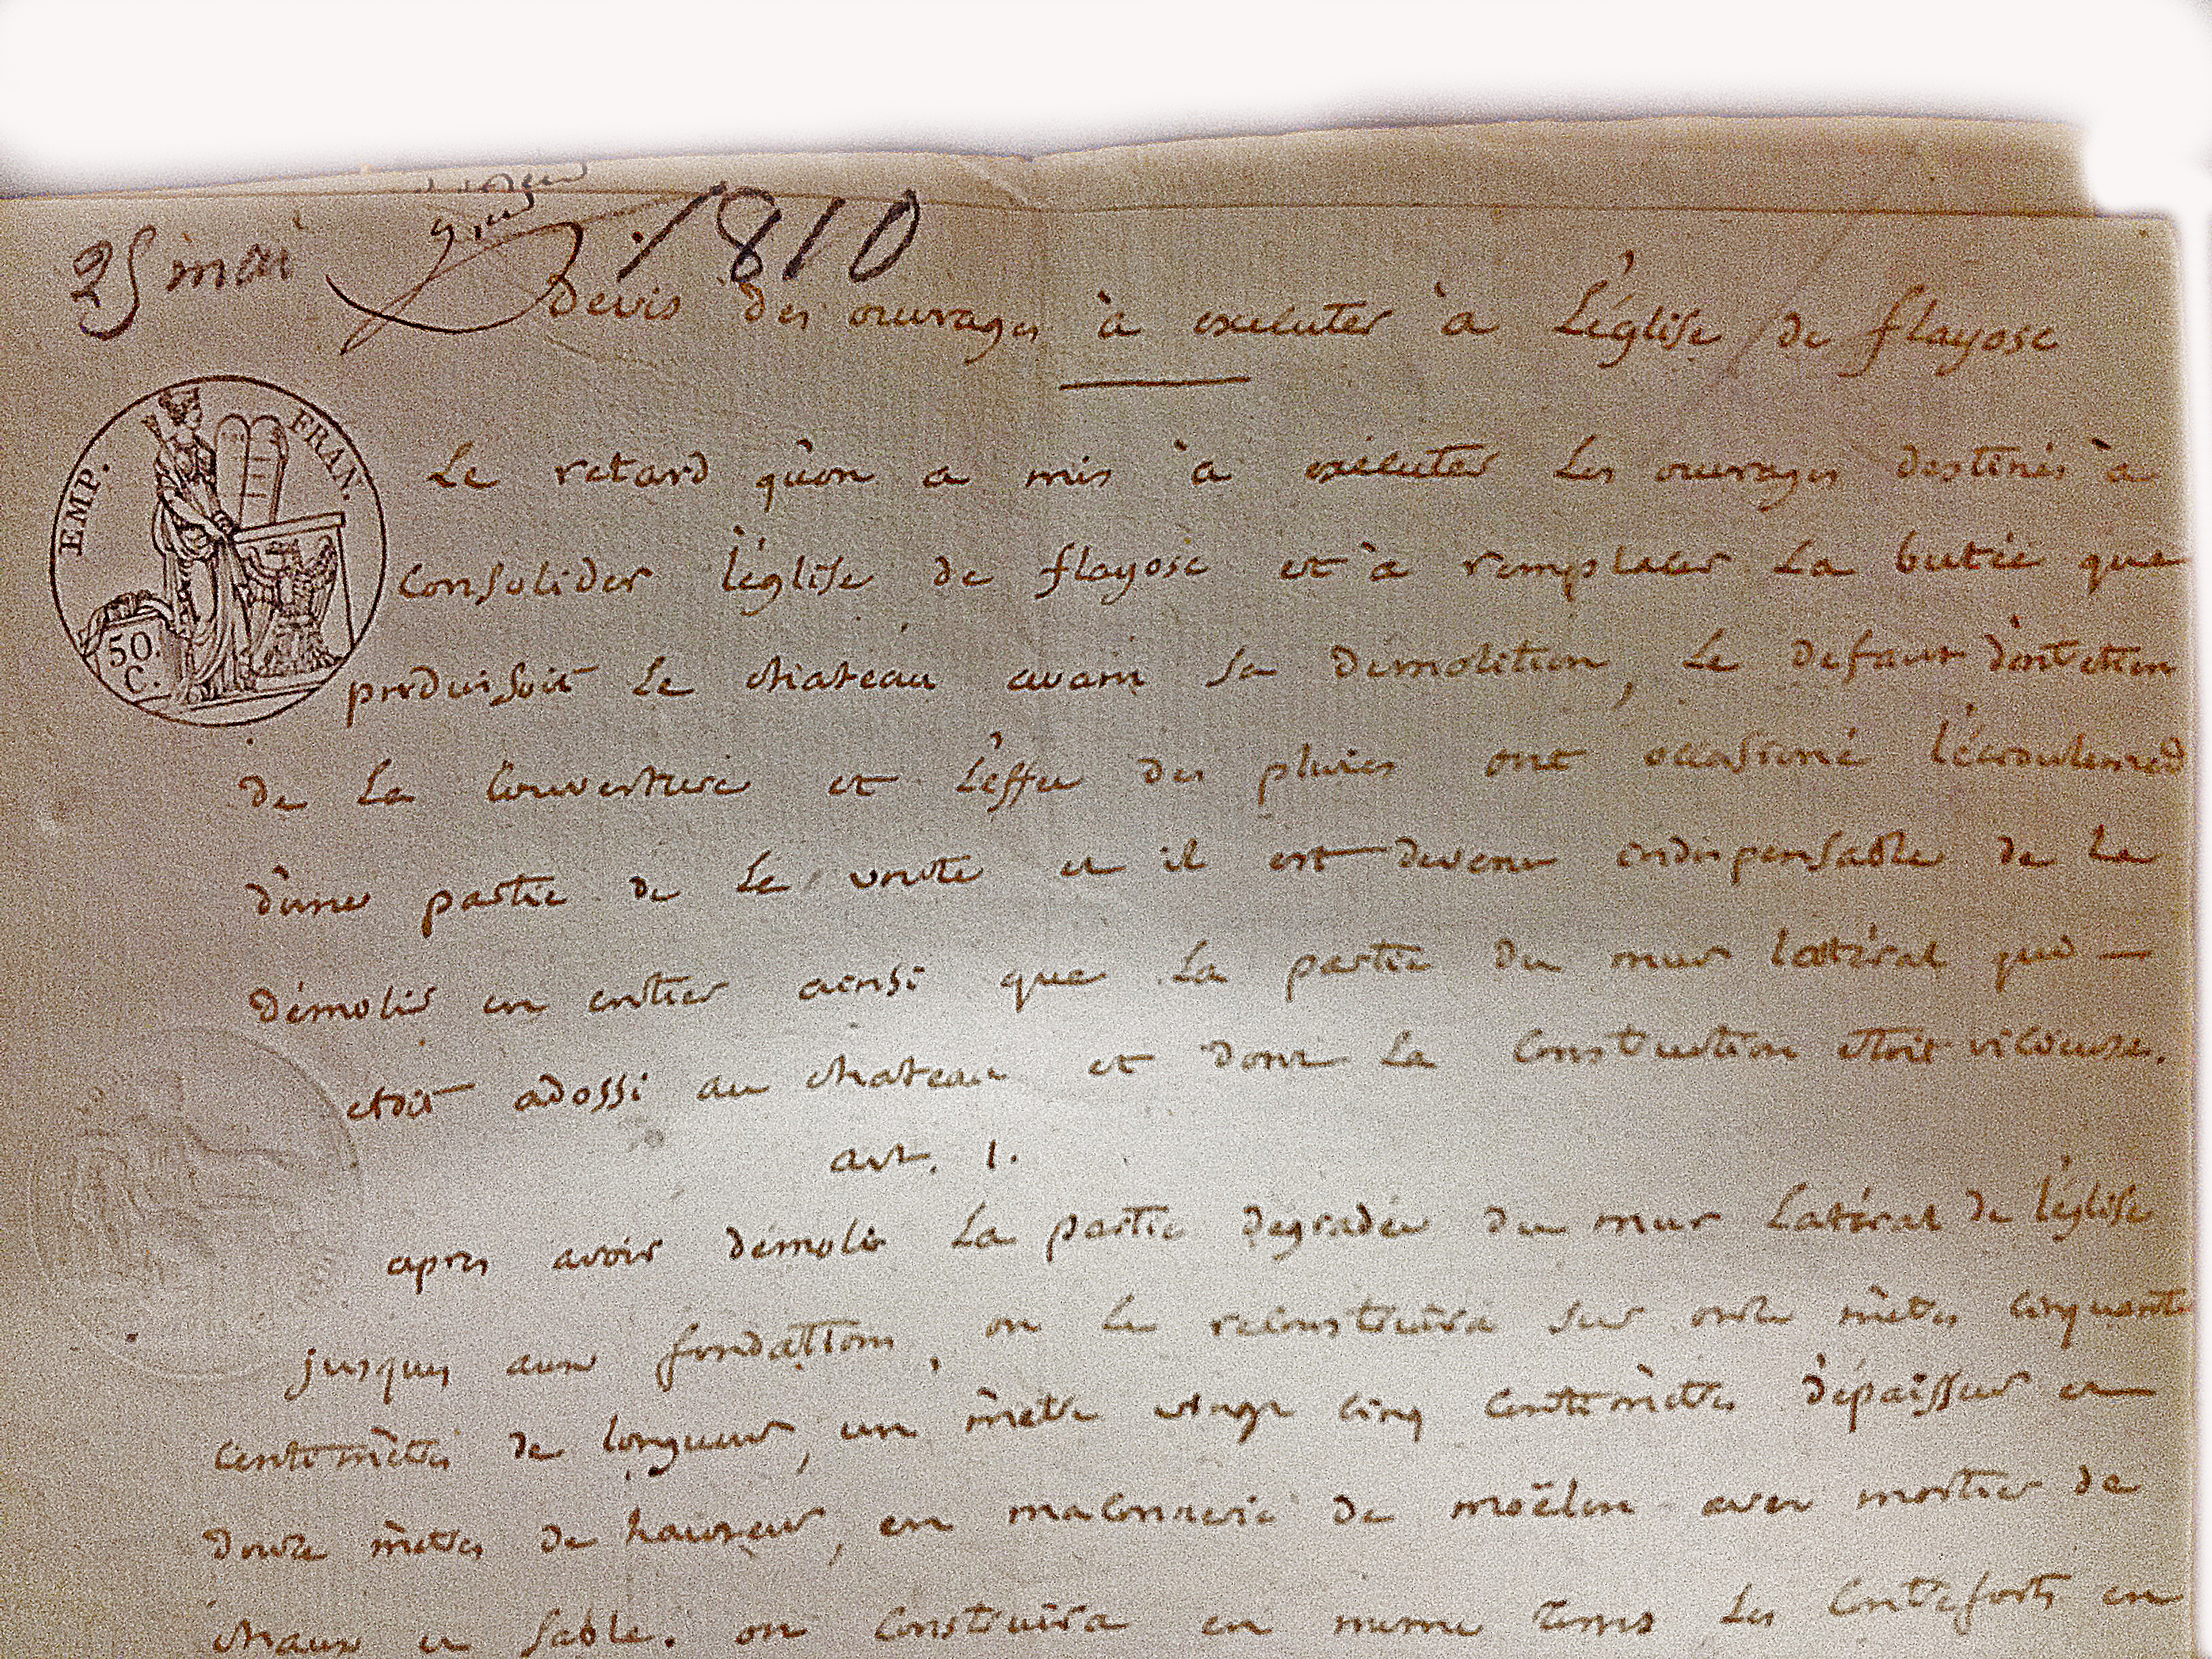 25 mai 1810
Devis des ouvrages à exécuter à L'église de flayosc
EMP. FRAN.
50. C.
Le retard qu'on a mis à exécuter Les ouvrages destinés à
Consolider l'église de flayosc et à remplacer La butée que
produisoit Le chateau avant sa démolition, Le defaut d'entretien
de La Couverture et L'effet des pluies ont occasioné l'écroulement
d'une partie de La voute et il est devenu indispensable de La
démolir en entier ainsi que La partie du mur latéral qui —
etoit adossé au chateau et dont La Construction etoit vicieuse.
art. 1.
apres avoir démoli La partie degradée du mur Latéral de l'église
jusques aux fondations, on Le reconstruira sur onze mètres cinquante
centimètres de longueur, un mètre vingt cinq centimètres d'épaisseur et
douze mètres de hauteur, en maconnerie de moëlon avec mortier de
chaux et sable. on construira en meme tems Les Contreforts en